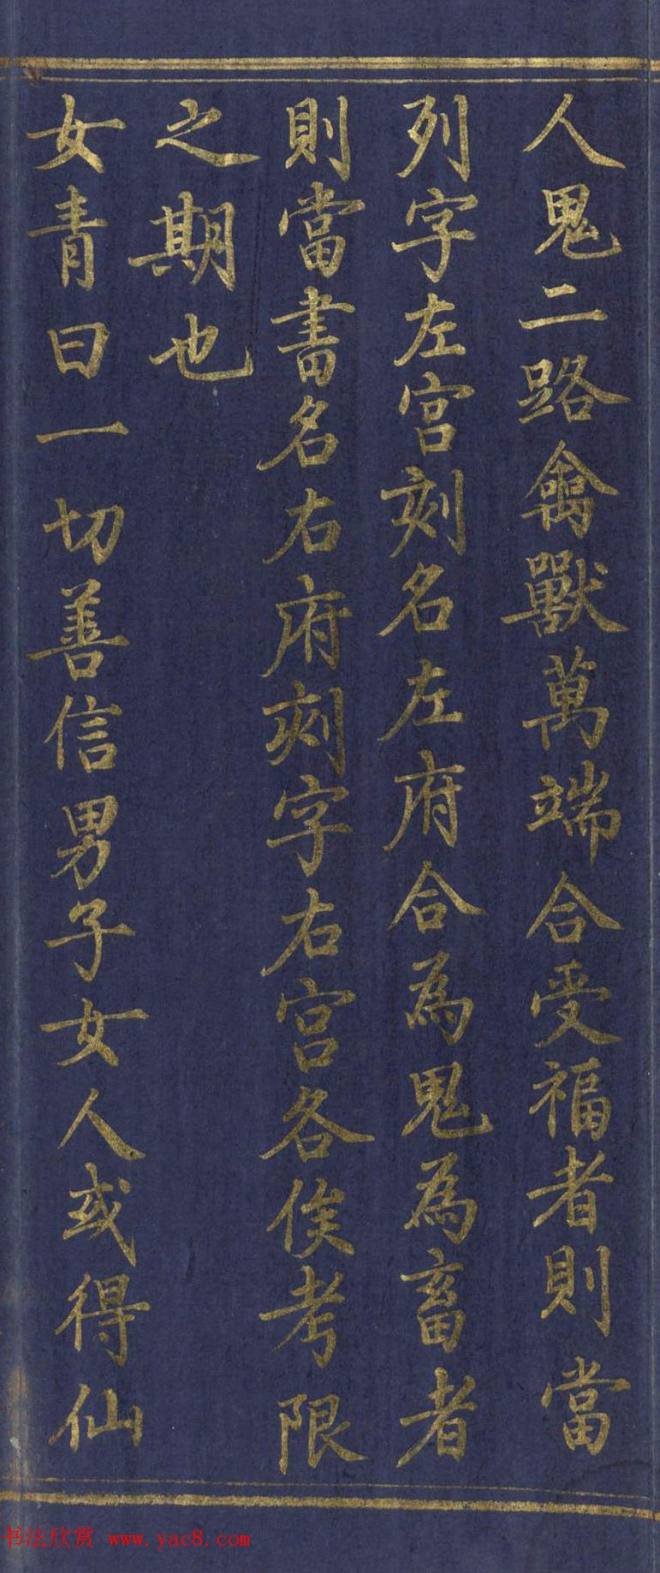 人鬼二路禽獸萬端合受福者則當
列字左宮刻名左府合為鬼為畜者
則當書名右府刻字右宮各俟考限
之期也
女青曰一切善信男子女人或得仙
书法欣赏 www.yac8.com